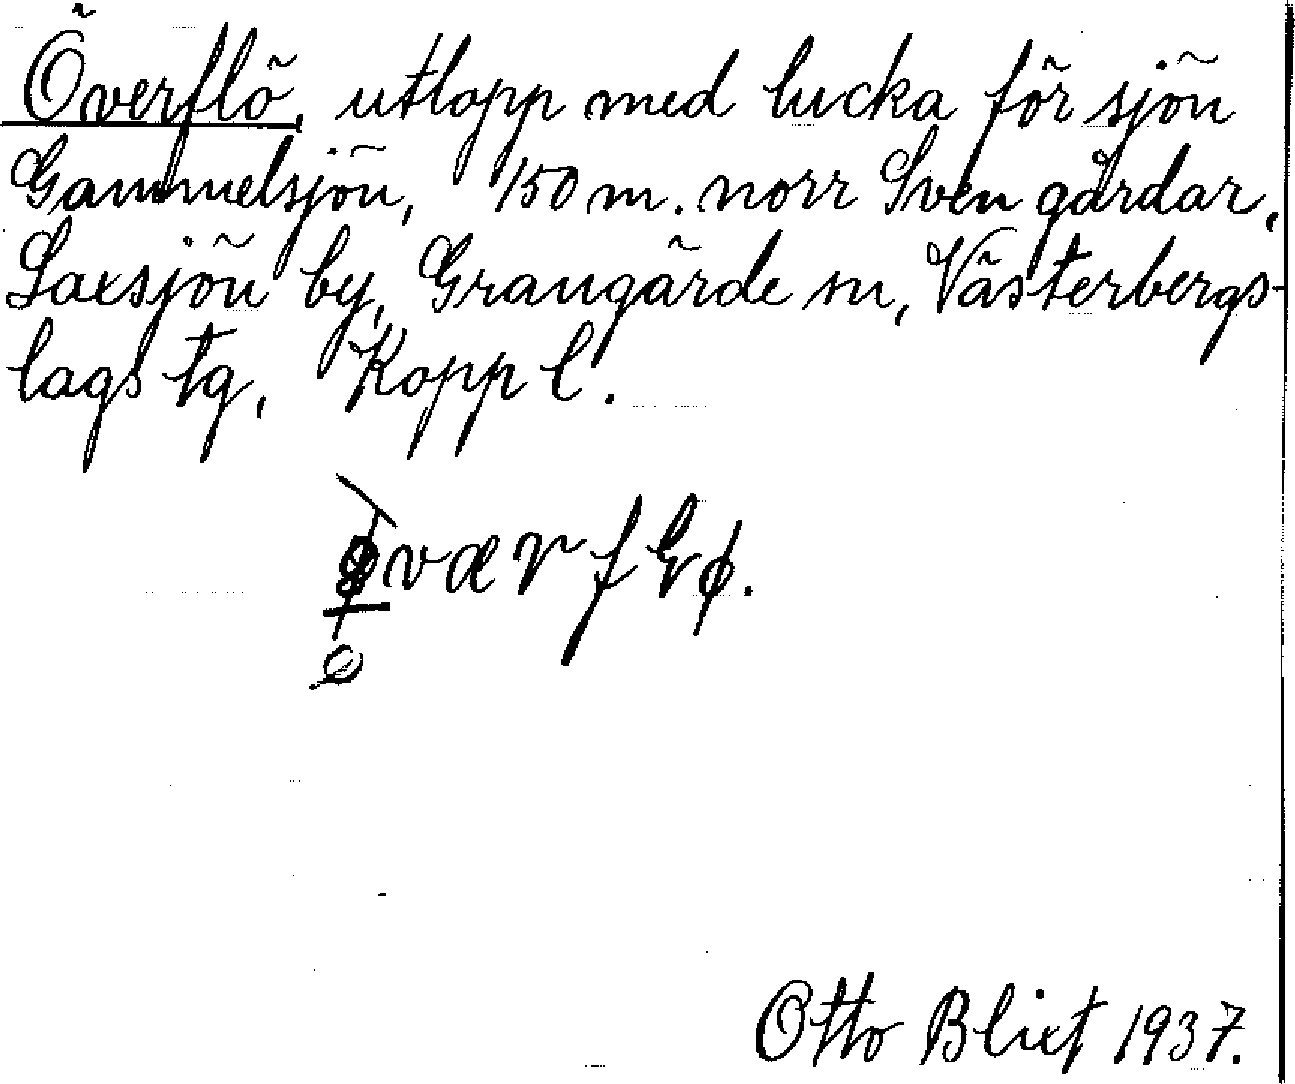 Överflö, utlopp med lucka för sjön
Gammelsjön, 150 m. norr Svengårdar,
Saxsjön by, Grangärde sn, Västerbergs-
lags tg, Kopp l.
værfłø.
Otto Blixt 1937.